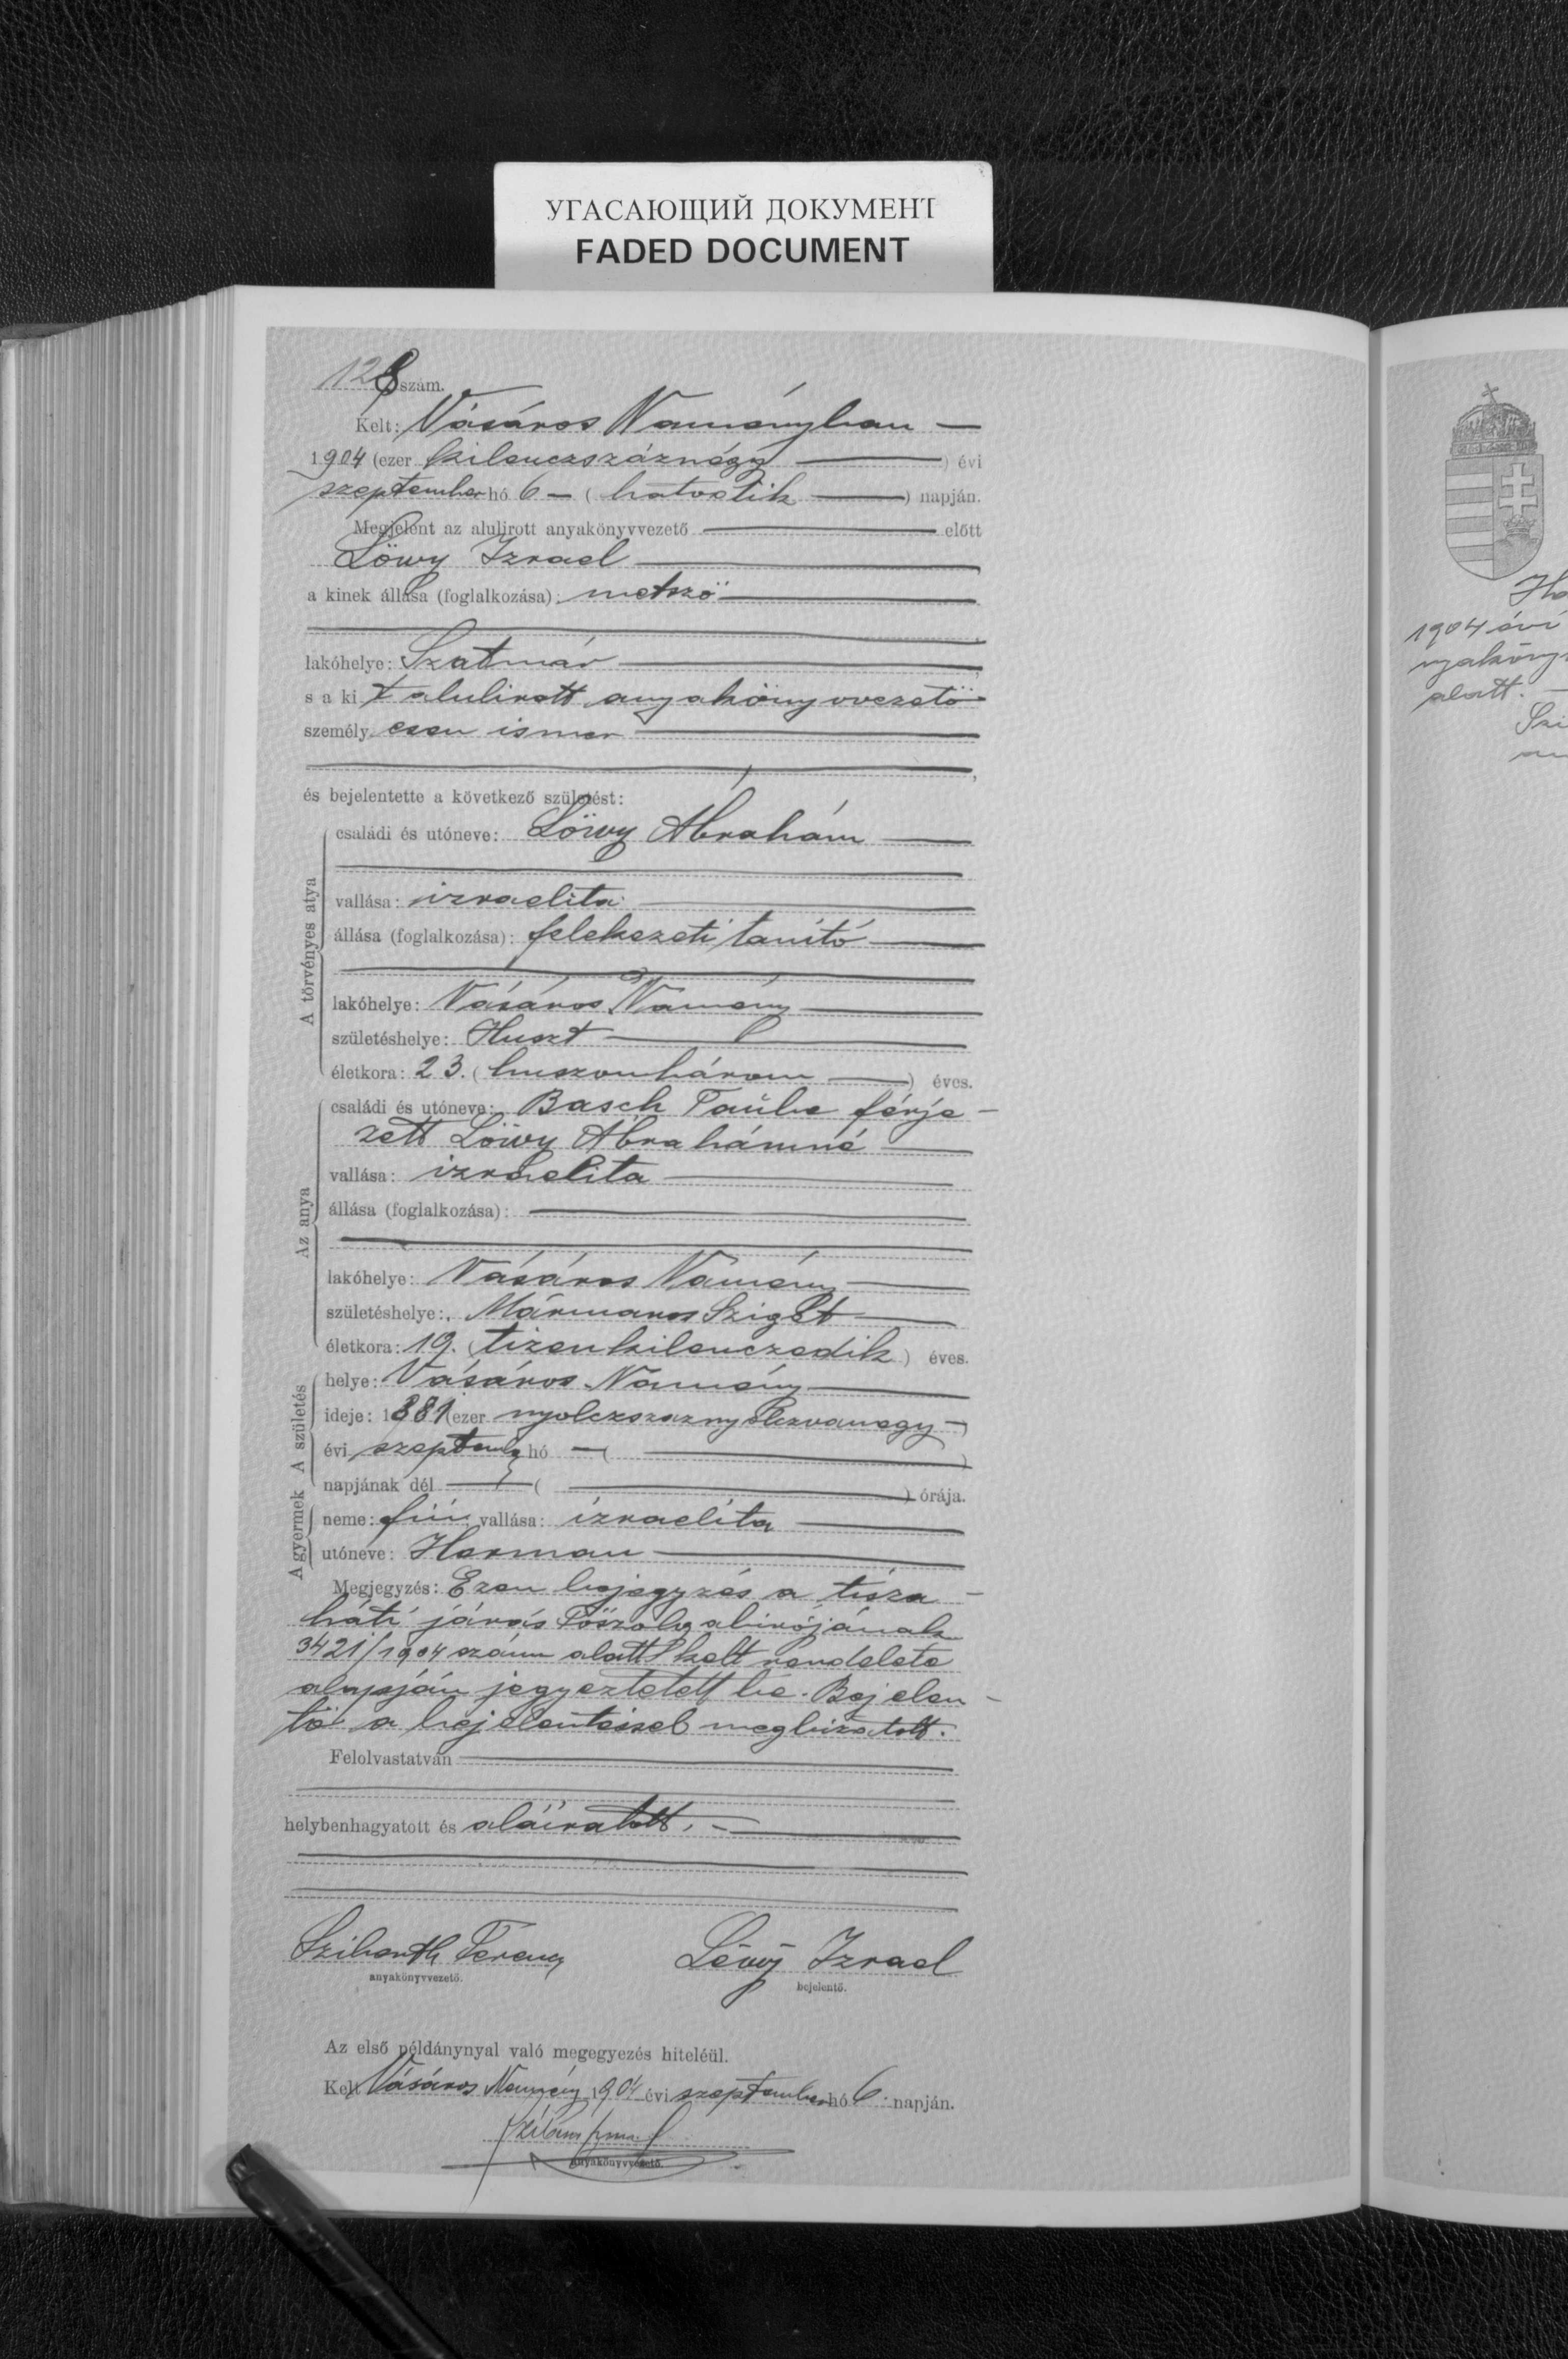 УГАСАЮЩИЙ ДОКУМЕНТ
FADED DOCUMENT
128 szám.
Kelt: Vásáros Naményban
1904 (ezer kilenczszáznégy) évi
szeptember hó 6 (hatodik) napján.
Megjelent az alulirott anyakönyvvezető előtt
Löwy Izrael
a kinek állása (foglalkozása): metsző
lakóhelye: Szatmár
s a kit alulirott anyakönyvvezető
személyesen ismer
és bejelentette a következő születést:
A törvényes atya
családi és utóneve: Löwy Ábrahám
vallása: izraelita
állása (foglalkozása): felekezeti tanító
lakóhelye: Vásáros Namény
születéshelye: Huszt
életkora: 23. (huszonhárom) éves.
Az anya
családi és utóneve: Basch Taube férje-
zett Löwy Ábrahámné
vallása: izraelita
állása (foglalkozása):
lakóhelye: Vásáros Namény
születéshelye: Mármaros Sziget
életkora: 19. (tizenkilenczedik) éves.
A születés
helye: Vásáros Namény
ideje: 1881 (ezer nyolczszáznyolczvanegy)
évi szeptemb hó
napjának dél órája.
A gyermek
neme: fiú, vallása: izraelita
utóneve: Herman
Megjegyzés: Ezen bejegyzés a tisza-
háti járás Főszolgabirójának
3421/1904 szám alatt kelt rendelete
alapján jegyeztetett be. Bejelen-
tő a bejelentéssel megbizatott.
Felolvastatván
helybenhagyatott és aláiratott.
Ferencz Lévÿ Izrael
anyakönyvvezető. bejelentő.
Az első példánynyal való megegyezés hiteléül.
Kelt Vásáros Namény 1904 évi szeptember hó 6 napján.
anyakönyvvezető.
1904 évi
alatt.